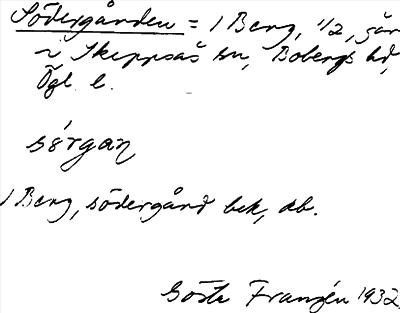 Södergården = 1 Berg, 1/2, går
i Skeppsås sn, Bobergs hd,
Ögl. l.
sö́rgan
1 Berg, södergård bek, ab.
Gösta Franzén 1932